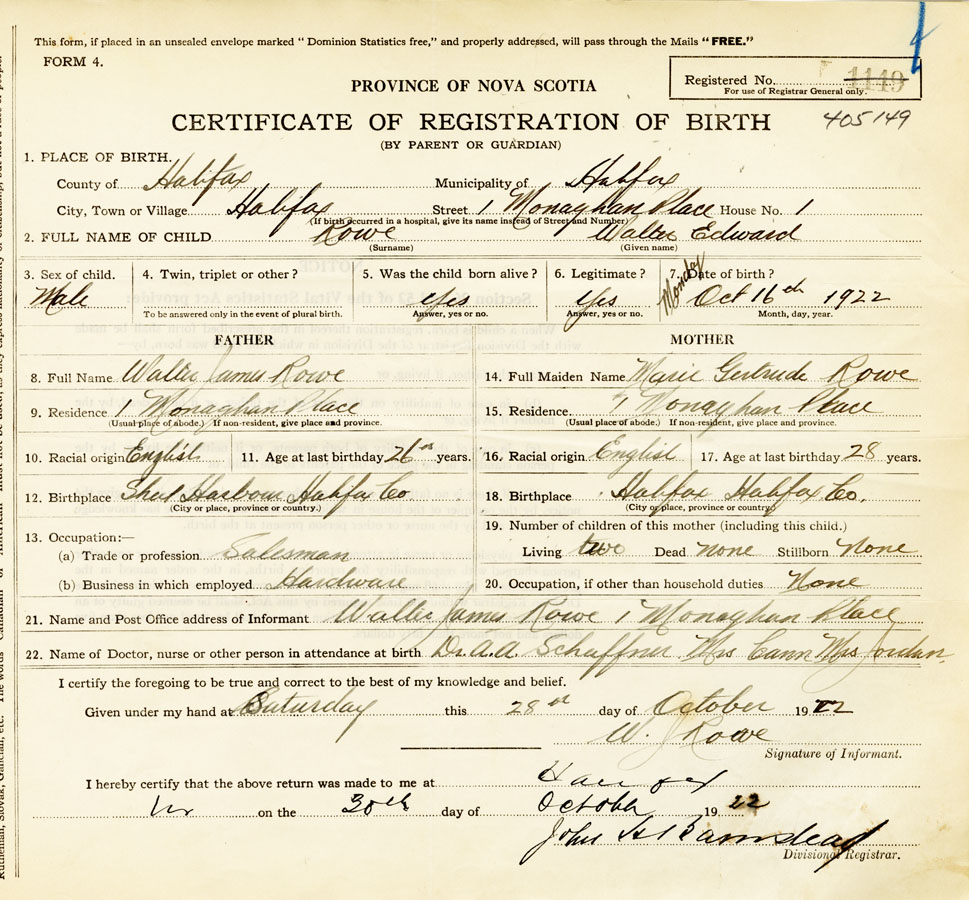 This form, if placed in an unsealed envelope marked “Dominion Statistics free,” and properly addressed, will pass through the Mails “FREE.”
FORM 4.
Registered No. 1149
For use of Registrar General only.
PROVINCE OF NOVA SCOTIA
CERTIFICATE OF REGISTRATION OF BIRTH 405149
(BY PARENT OR GUARDIAN)
1. PLACE OF BIRTH.
County of Halifax Municipality of Halifax
City, Town or Village Halifax Street 1 Monaghan Place House No. 1
(If birth occurred in a hospital, give its name instead of Street and Number)
2. FULL NAME OF CHILD Rowe Walter Edward
(Surname) (Given name)
3. Sex of child. 4. Twin, triplet or other? 5. Was the child born alive? 6. Legitimate? 7. Date of birth?
Male Yes Yes Monday Oct 16th 1922
To be answered only in the event of plural birth. Answer, yes or no. Answer, yes or no. Month, day, year.
FATHER MOTHER
8. Full Name Walter James Rowe 14. Full Maiden Name Marie Gertrude Rowe
9. Residence 1 Monaghan Place 15. Residence. 1 Monaghan Place
(Usual place of abode.) If non-resident, give place and province. (Usual place of abode.) If non-resident, give place and province.
10. Racial origin English 11. Age at last birthday 26 years. 16. Racial origin English 17. Age at last birthday 28 years.
12. Birthplace Sheet Harbour Halifax Co 18. Birthplace Halifax Halifax Co.
(City or place, province or country.) (City or place, province or country.)
13. Occupation:— 19. Number of children of this mother (including this child.)
(a) Trade or profession Salesman Living two Dead none Stillborn None
(b) Business in which employed Hardware 20. Occupation, if other than household duties None
21. Name and Post Office address of Informant Walter James Rowe 1 Monaghan Place
22. Name of Doctor, nurse or other person in attendance at birth Dr. A. A. Schaffner Mrs Cann Mrs Jordan.
I certify the foregoing to be true and correct to the best of my knowledge and belief.
Given under my hand at Saturday this 28th day of October 1922
W. J Rowe
Signature of Informant.
I hereby certify that the above return was made to me at Halifax
on the 30th day of October 1922
John H Barnstead
Divisional Registrar.